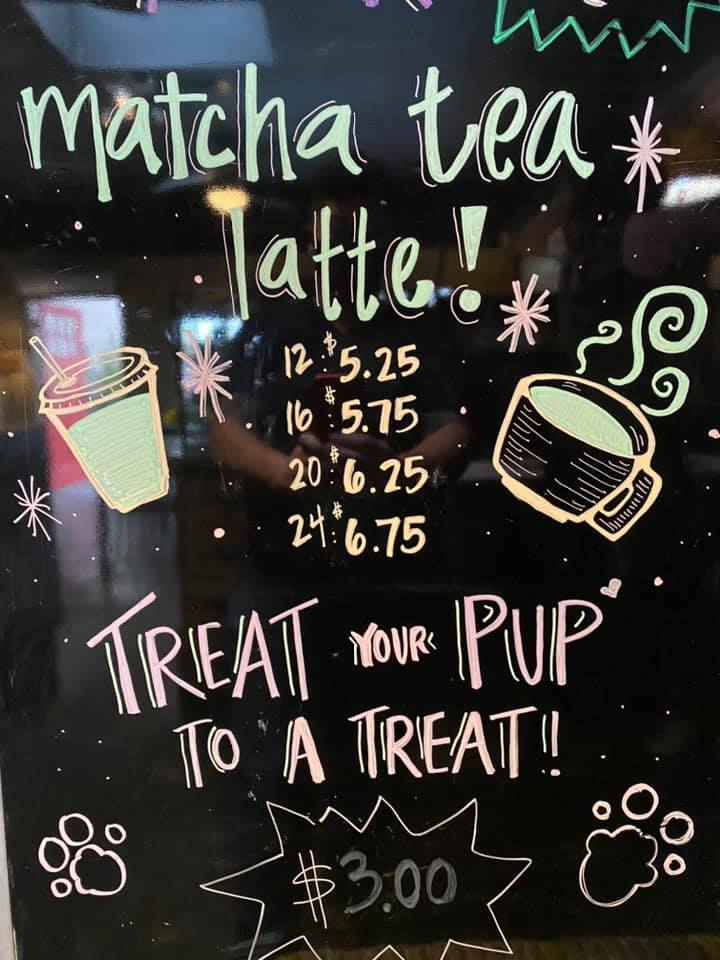 matcha tea
latte!
12 $5.25
16 $5.75
20 $6.25
24 $6.75
TREAT YOUR PUP
TO A TREAT!
$3.00